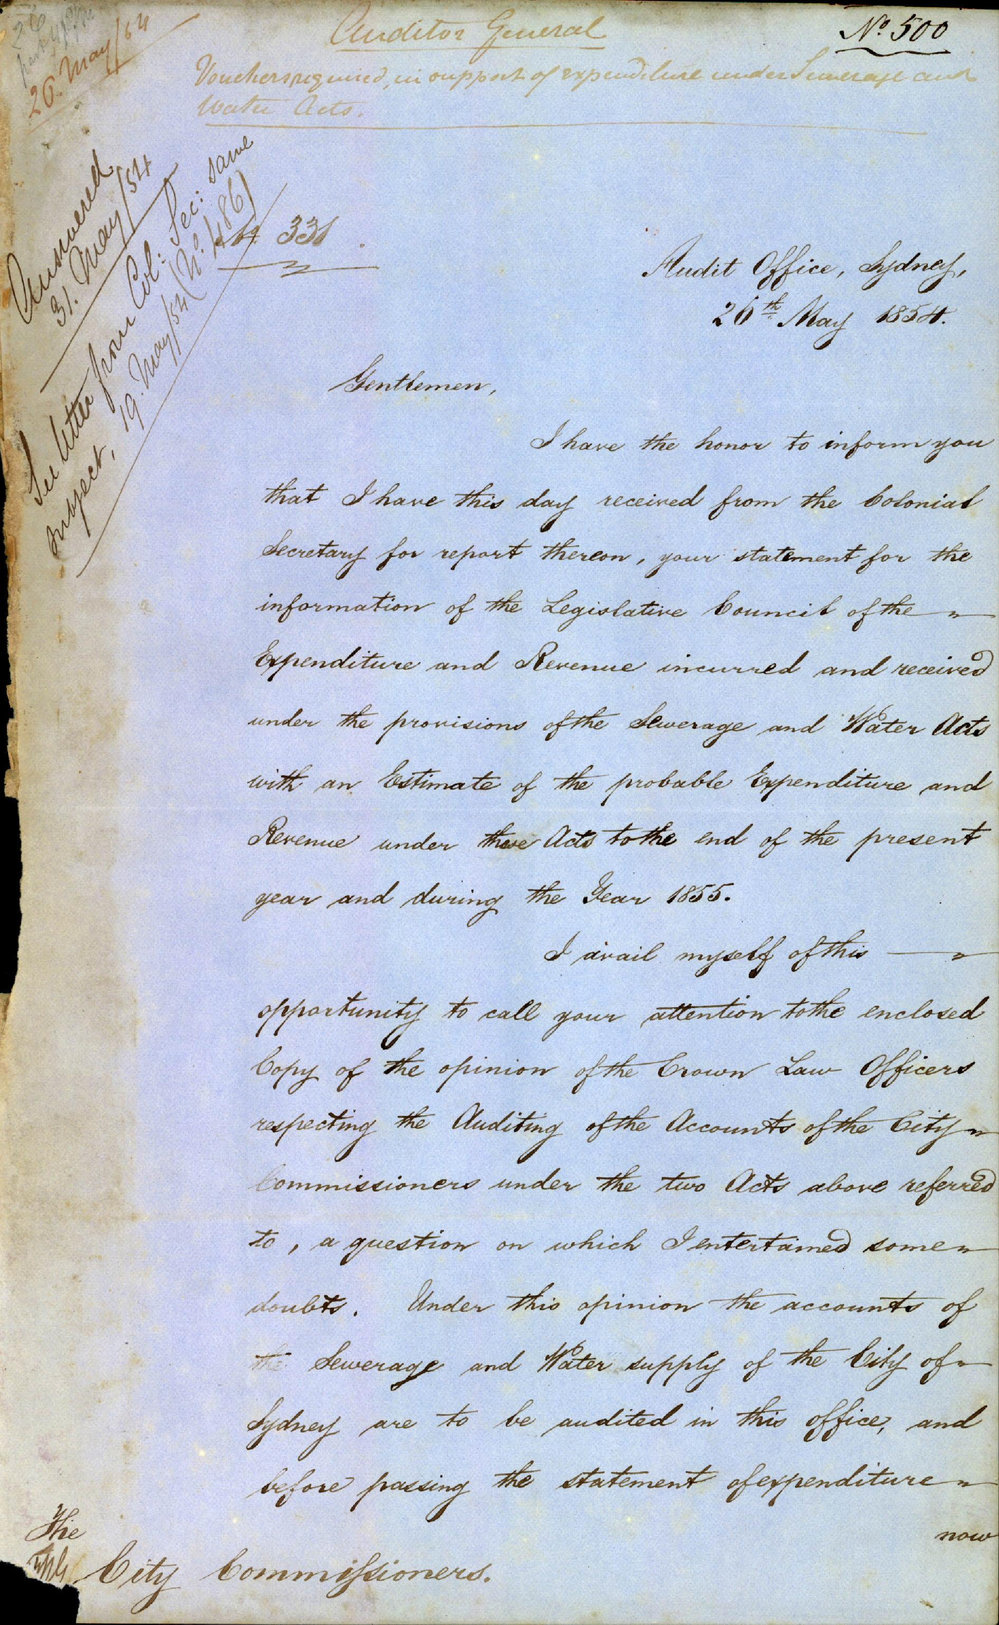 26 May/54
Auditor General
No. 500
Vouchers required, in support of expenditure under Sewerage and
Water Acts.
Answered
31. May/54
See letter from Col: Sec: same
subject, 19. May/54 (No. 486)
331
Audit Office, Sydney,
26th May 1854.
Gentlemen,
I have the honor to inform you
that I have this day received from the Colonial
Secretary for report thereon, your statement for the
information of the Legislative Council of the
Expenditure and Revenue incurred and received
under the provisions of the Sewerage and Water Acts
with an Estimate of the probable Expenditure and
Revenue under these Acts to the end of the present
year and during the Year 1855.
I avail myself of this
opportunity to call your attention to the enclosed
Copy of the opinion of the Crown Law Officers
respecting the Auditing of the Accounts of the City
Commissioners under the two Acts above referred
to, a question on which I entertained some
doubts. Under this opinion the accounts of
the Sewerage and Water supply of the City of
Sydney are to be audited in this office, and
before passing the statement of expenditure
now
The
City Commissioners.